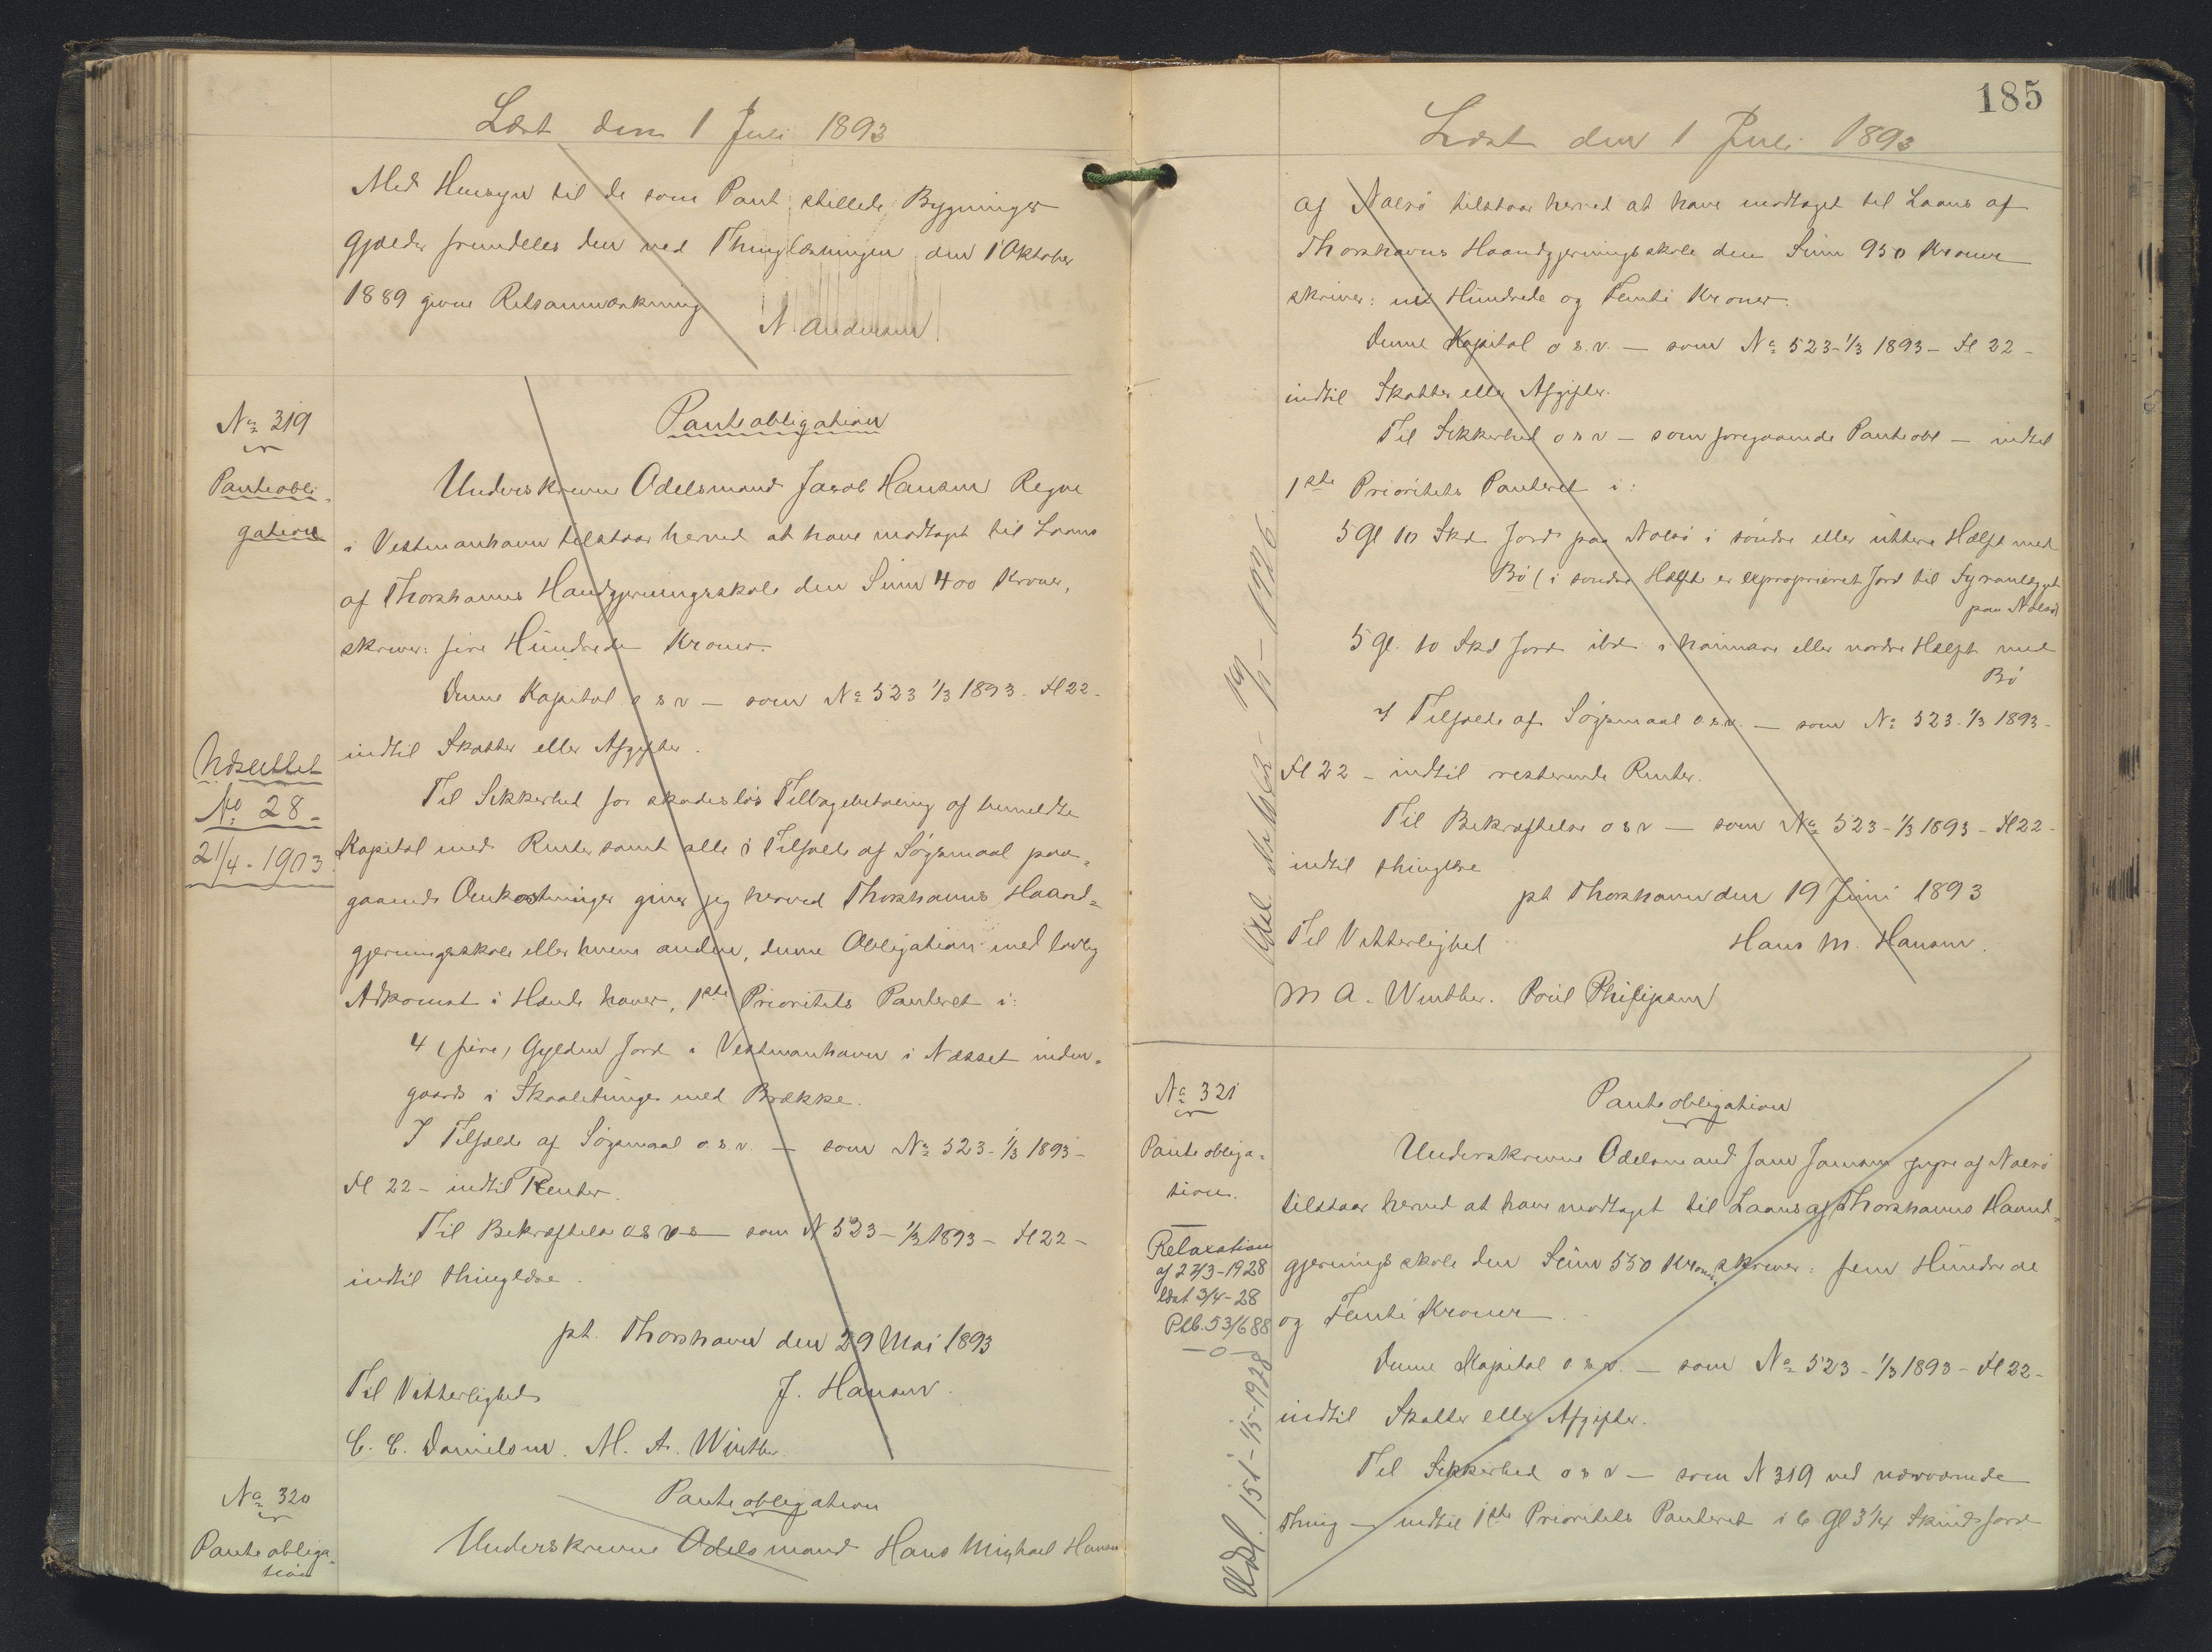 Læst den 1 Juli 1893
Med Hensyn til de som Pant stillede Bygninger
gjælder fremdeles den ved Thinglæsningen den 1 Oktober
1889 givne Retsanmærkning
N Andersen
No 319
Panteobli-
gation
Panteobligation
Underskrevne Odelsmand Jacob Hansen Regne
i Vestmanhavn tilstaar herved at have modtaget til Laans
af Thorshavns Haandgjerningsskole den Sum 400 Kroner,
skriver: fire Hundrede Kroner.
Denne Kapital o s v — som No 523 1/3 1893 - fl 22 -
indtil Skatter eller Afgifter.
Udslettet
No 28 -
21/4 - 1903.
Til Sikkerhed for skadeslös Tilbagebetaling af bemeldte
Kapital med Renter samt alle i Tilfælde af Søgsmaal paa-
gaaende Omkostninger giver jeg herved Thorshavns Haand-
gjerningsskole eller hvem anden, denne Obligation med lovlig
Adkomst i Hænde haver, 1ste Prioritets Panteret i:
4 (fire) Gylden Jord i Vestmanhavn i Næsset inden-
gaards i Skaaletunge med Brække.
I Tilfælde af Søgsmaal o. s. v. — som No 523 - 1/3 1893 -
fl 22 - indtil Renter.
Til Bekræftelse o s v — som N 523 - 1/3 1893 - fl 22 -
indtil thinglæse.
pt. Thorshavn den 29 Mai 1893
Til Vitterlighed
J. Hansen.
C. C. Danielsen. M. A. Winther.
No 320
Panteobliga-
tion
Panteobligation
Underskrevne Odelsmand Hans Michael Hansen
185
Læst den 1 Juli 1893
af Nolsö tilstaar herved at have modtaget til Laans af
Thorshavns Haandgjerningsskole den Sum 950 Kroner
skriver: ni Hundrede og Femti Kroner.
Denne Kapital o s. v. — som No 523 - 1/3 1893 - fl 22 -
indtil Skatter eller Afgifter.
Til Sikkerhed o s v — som foregaaende Panteobl — indtil
1ste Prioritets Panteret i:
5 Gl 10 Skd Jord paa Nolsö i söndre eller üttere Hælft med
Bö (i söndre Hælfte er exproprieret Jord til Fyranlægget
paa Nolsö)
5 Gl. 10 Skd Jord ibd i haimare eller nordre Hælft med
Bö
I Tilfælde af Søgsmaal o. s. v. — som No 523 - 1/3 1893 -
fl 22 - indtil resterende Renter.
Til Bekræftelse o s v — som No 523 - 1/3 1893 - fl 22 -
indtil thinglæse
pt Thorshavn den 19 Juni 1893
Til Vitterlighed
Hans M. Hansen.
M A. Winther. Poul Philipsen
No 321
Panteobliga-
tion.
Relaxation
af 27/3-1928
læst 3/4-28
Ptb. 53/688
—o—
Udsl. 151 - 1/5-1928
Panteobligation
Underskrevne Odelsmand Jens Jensen af Nolsö
tilstaar herved at have modtaget til Laans af Thorshavns Haand-
gjerningsskole den Sum 550 Kroner, skriver: fem Hundrede
og Femti Kroner.
Denne Kapital o s. v. — som No 523 - 1/3 1893 - fl 22 -
indtil Skatter eller Afgifter.
Til Sikkerhed o s v — som N 319 ved nærværende
Thing — indtil 1ste Prioritets Panteret i 6 Gl 3 1/4 Skinds Jord